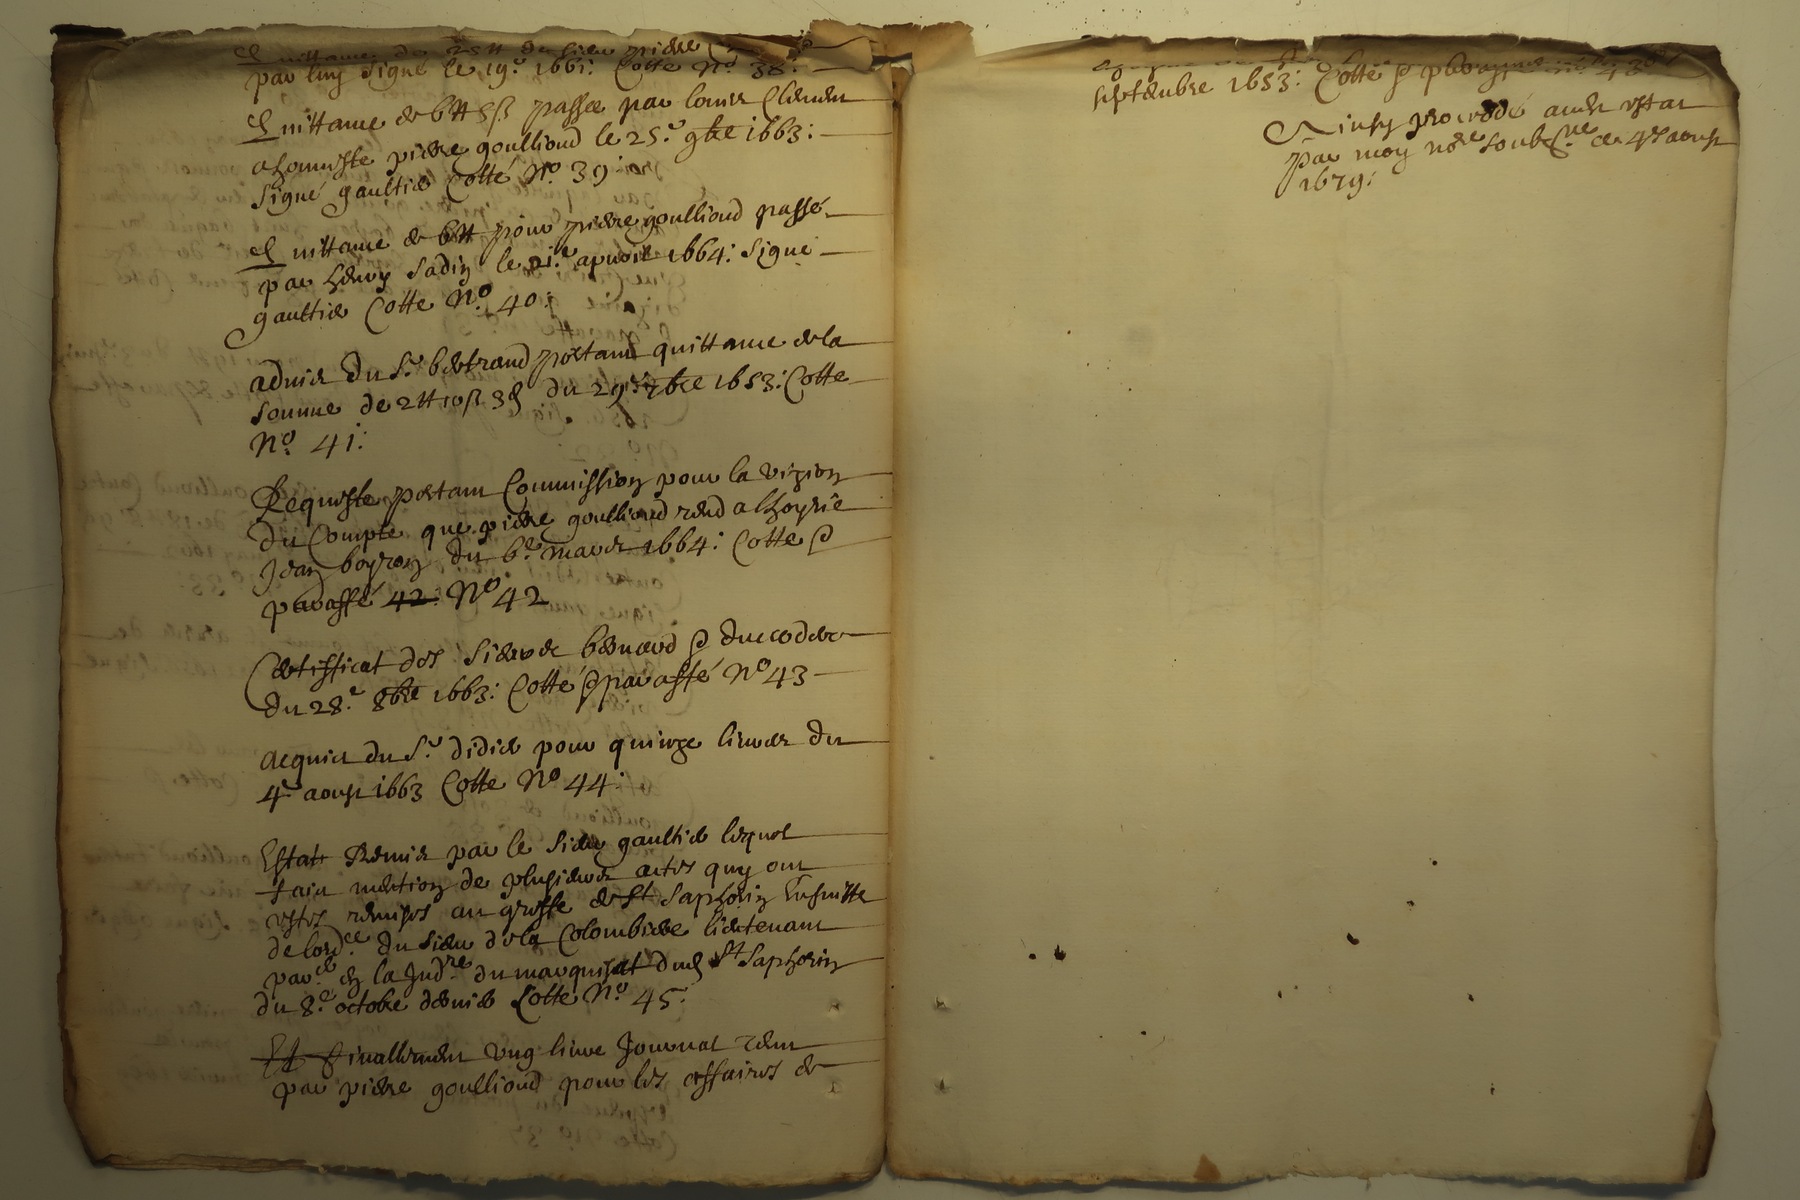 Quittance de 25tt du sieur pierre
par luy signé le 19e 1661: Cotte No 38:
Quittance de 6tt 5ß passée par louis Clement
a honneste pierre goullioud le 25e 9bre 1663:
signé gaultier Cotté No 39
Quittance de 6tt pour pierre goullioud passé
par henry sadin le 21e apvril 1664: signé
gaultier Cotte No 40:
advis du Sr bertrand portant quittance de la
somme de 2tt 10ß 3d du 29e 7bre 1653: Cotte
No 41:
Requeste portant Commission pour la vizion
du Compte que pierre goullioud rend a lhoyrie
Jean boyron du 6e mars 1664: Cotte &
paraffé 42: No 42
Certifficat des sieurs bernard &
du 28e 8bre 1663: Cotté & paraffé No 43
acquit du Sr didier pour quinze livres du
4e aoust 1663 Cotte No 44:
Estat Remis par le sieur gaultier lequel
fait mention de plusieurs actes quy ont
estes remises au greffe de St Saphorin Ensuitte
de lordce du sieur de la Colombiere lieutenant
parer en la Judre du marquisat dud St Saphorin
du 8e octobre dernier Cotte No 45:
Et finallement ung livre Journal tenu
par pierre goullioud pour les affaires de
septembre 1653: Cotte & paraffé
Ainsy procedé audit estat
par moy nore soubsne ce 4e aoust
1679: